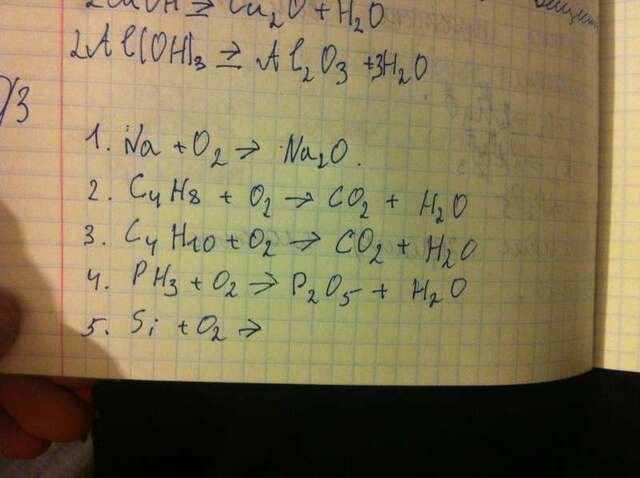 2CuOH ⇒ Cu₂O + H₂O
2Al(OH)₃ ⇒ Al₂O₃ + 3H₂O
Д/З
1. Na + O₂ → Na₂O.
2. C₄H₈ + O₂ → CO₂ + H₂O
3. C₄H₁₀ + O₂ → CO₂ + H₂O
4. PH₃ + O₂ → P₂O₅ + H₂O
5. Si + O₂ →